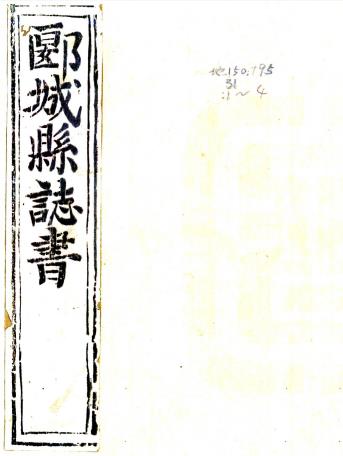 郾城縣誌書
地150.195
31
:1~4